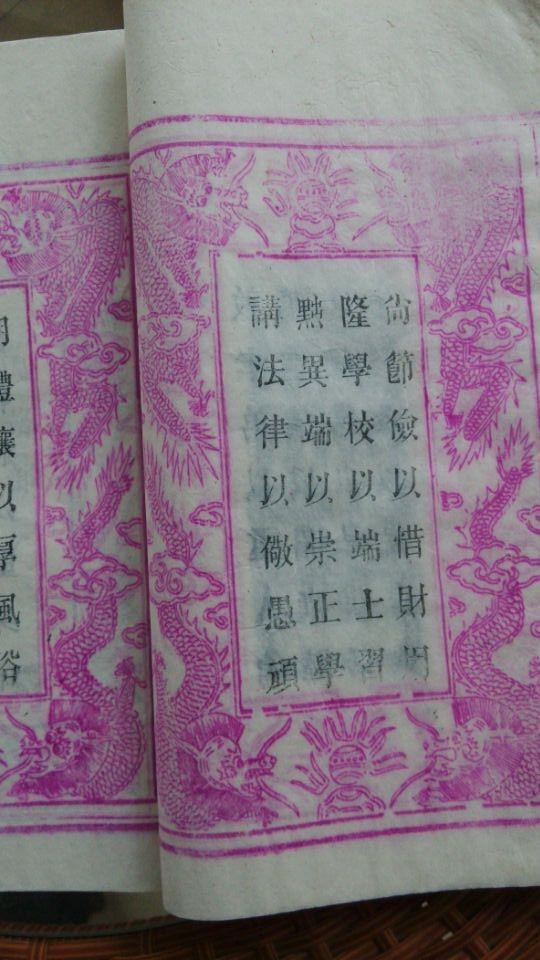 尙節儉以惜財用
隆學校以端士習
黜異端以崇正學
講法律以儆愚頑
明禮讓以厚風俗